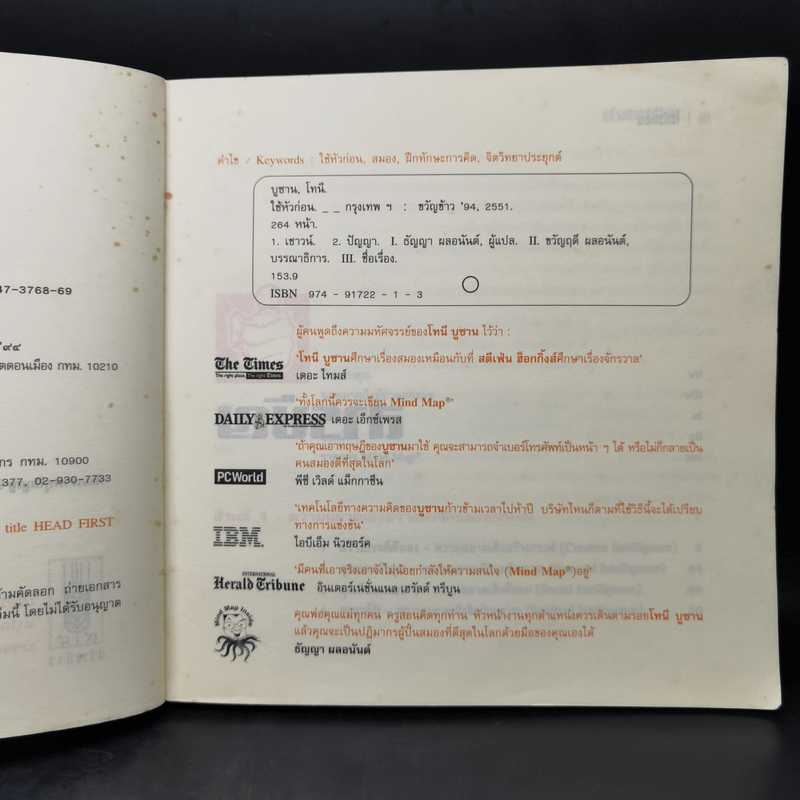 47-3768-69
๙๔
ตดอนเมือง กทม. 10210
กร กทม. 10900
377, 02-930-7733
title HEAD FIRST
ามคัดลอก ถ่ายเอกสาร
ล่มนี้ โดยไม่ได้รับอนุญาต
คำไข / Keywords : ใช้หัวก่อน, สมอง, ฝึกทักษะการคิด, จิตวิทยาประยุกต์
บูซาน, โทนี.
ใช้หัวก่อน. _ _ กรุงเทพ ฯ : ขวัญข้าว '94, 2551.
264 หน้า.
1. เชาวน์. 2. ปัญญา. I. ธัญญา ผลอนันต์, ผู้แปล. II. ขวัญฤดี ผลอนันต์,
บรรณาธิการ. III. ชื่อเรื่อง.
153.9
ISBN 974 - 91722 - 1 - 3
ผู้คนพูดถึงความมหัศจรรย์ของโทนี บูซาน ไว้ว่า :
The Times
The right place. The right Times.
'โทนี บูซานศึกษาเรื่องสมองเหมือนกับที่ สตีเฟ่น ฮ็อกกิ้งส์ศึกษาเรื่องจักรวาล'
เดอะ ไทมส์
'ทั้งโลกนี้ควรจะเขียน Mind Map®'
DAILY EXPRESS เดอะ เอ็กซ์เพรส
'ถ้าคุณเอาทฤษฎีของบูซานมาใช้ คุณจะสามารถจำเบอร์โทรศัพท์เป็นหน้า ๆ ได้ หรือไม่ก็กลายเป็น
คนสมองดีที่สุดในโลก'
PCWorld พีซี เวิลด์ แม็กกาซีน
'เทคโนโลยีทางความคิดของบูซานก้าวข้ามเวลาไปห้าปี บริษัทไหนก็ตามที่ใช้วิธีนี้จะได้เปรียบ
ทางการแข่งขัน'
IBM ไอบีเอ็ม นิวยอร์ค
'มีคนที่เอาจริงเอาจังไม่น้อยกำลังให้ความสนใจ (Mind Map®)อยู่'
INTERNATIONAL
Herald Tribune อินเตอร์เนชั่นแนล เฮรัลด์ ทรีบูน
Mind Map Inside
คุณพ่อคุณแม่ทุกคน ครูสอนคิดทุกท่าน หัวหน้างานทุกตำแหน่งควรเดินตามรอยโทนี บูซาน
แล้วคุณจะเป็นปฏิมากรผู้ปั้นสมองที่ดีที่สุดในโลกด้วยมือของคุณเองได้
ธัญญา ผลอนันต์